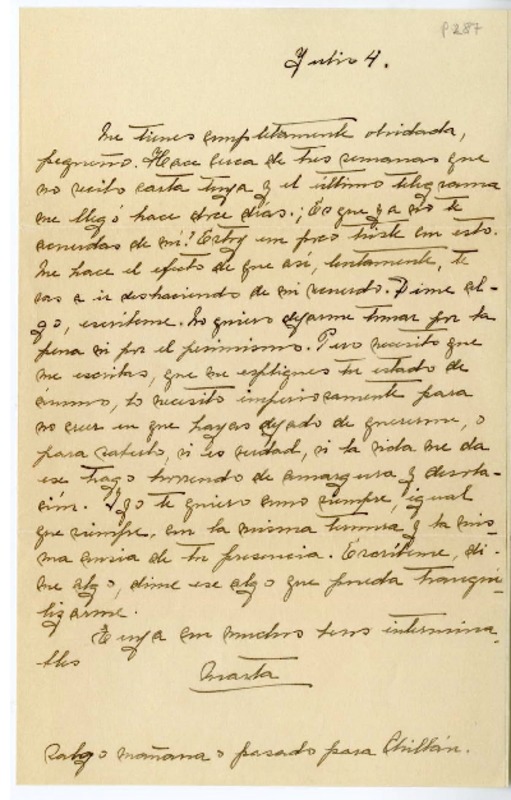 P 287
Julio 4.
Me tienes completamente olvidada,
pequeño. Hace cerca de tres semanas que
no recibo carta tuya y el último telegrama
me llegó hace doce días. ¿Es que ya no te
acuerdas de mí? Estoy un poco triste con esto.
Me hace el efecto de que así, lentamente, te
vas a ir deshaciendo de mi recuerdo. Dime al-
go, escríbeme. No quiero dejarme tomar por la
pena ni por el pesimismo. Pero necesito que
me escribas, que me expliques tu estado de
ánimo, lo necesito imperiosamente para
no creer en que hayas dejado de quererme, o
para saberlo, si es verdad, si la vida me da
ese trago horrendo de amargura y desola-
ción. Yo te quiero como siempre, igual
que siempre, con la misma ternura y la mis-
ma ansia de tu presencia. Escríbeme, di-
me algo, dime ese algo que pueda tranqui-
lizarme.
Tuya con muchos besos intermina-
bles
Marta
Salgo mañana o pasado para Chillán.